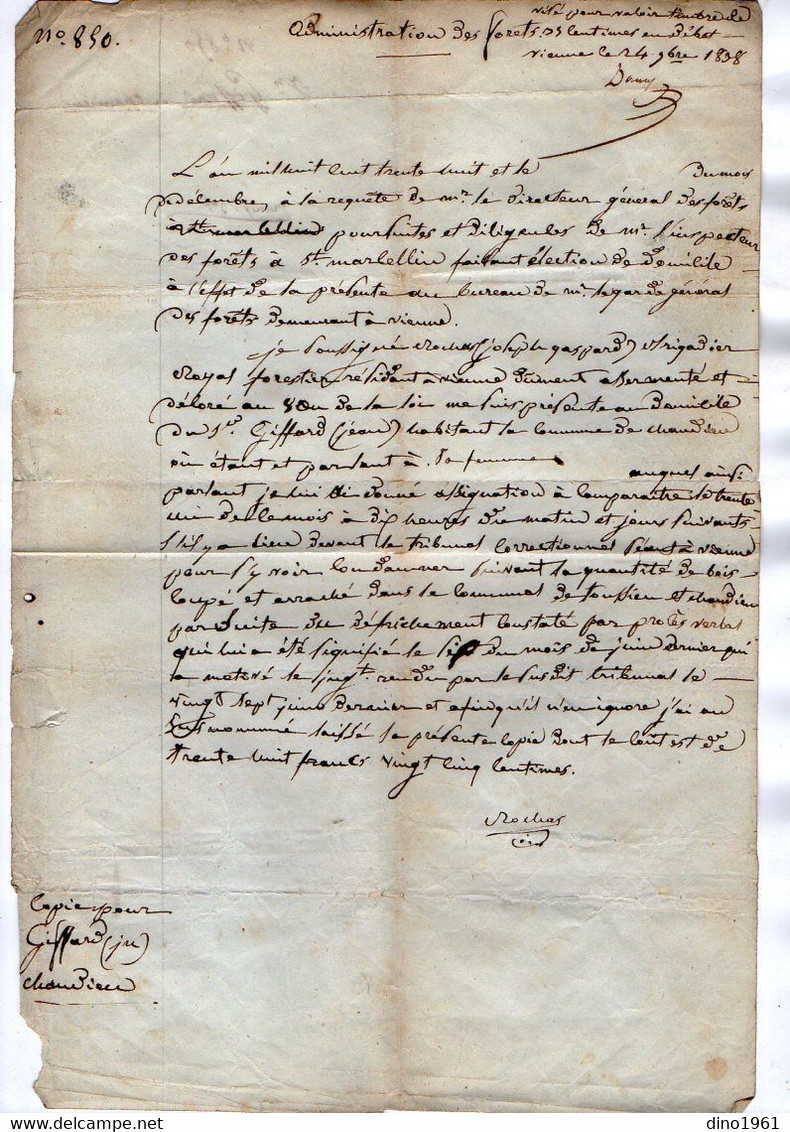 N°. 850.
visé pour valoir timbre de
Administration des forets. 35 centimes en débet
vienne le 24 9bre 1838
L'an mil huit cent trente huit et le du mois
de décembre, à la requête de mr. le directeur général des forêts
poursuites et diligences de mr. l'inspecteur
des forêts à st. marcellin faisant élection de domicile
à l'effet de la présente au bureau de mr. le garde général
des forêts demeurant à vienne.
je soussigné Rochas (joseph gaspard) Brigadier
Royal forestier résidant à vienne dûment assermenté et
décoré au vœu de la loi me suis présenté au domicile
du Sr. Giffard (jean) habitant la commune de chandieu
où étant et parlant à sa femme auquel ainsi
parlant je lui ai donné assignation à comparaître le trente
un de ce mois à dix heures du matin et jours suivants
s'il y a lieu devant le tribunal correctionnel séant à vienne
pour s'y voir condamner suivant la quantité de bois
coupé et arraché dans le communal de toussieu et chandieu
par suite du défrichement constaté par procès verbal
qui lui a été signifié le six du mois de juin dernier qui
a motivé le jugt. rendu par le susdit tribunal le
vingt sept juin dernier et afin qu'il n'en ignore j'ai au
sus nommé laissé la présente copie dont le coût est de
trente huit francs vingt cinq centimes.
Rochas
copie pour
Giffard (jn)
chandieu
dino1961